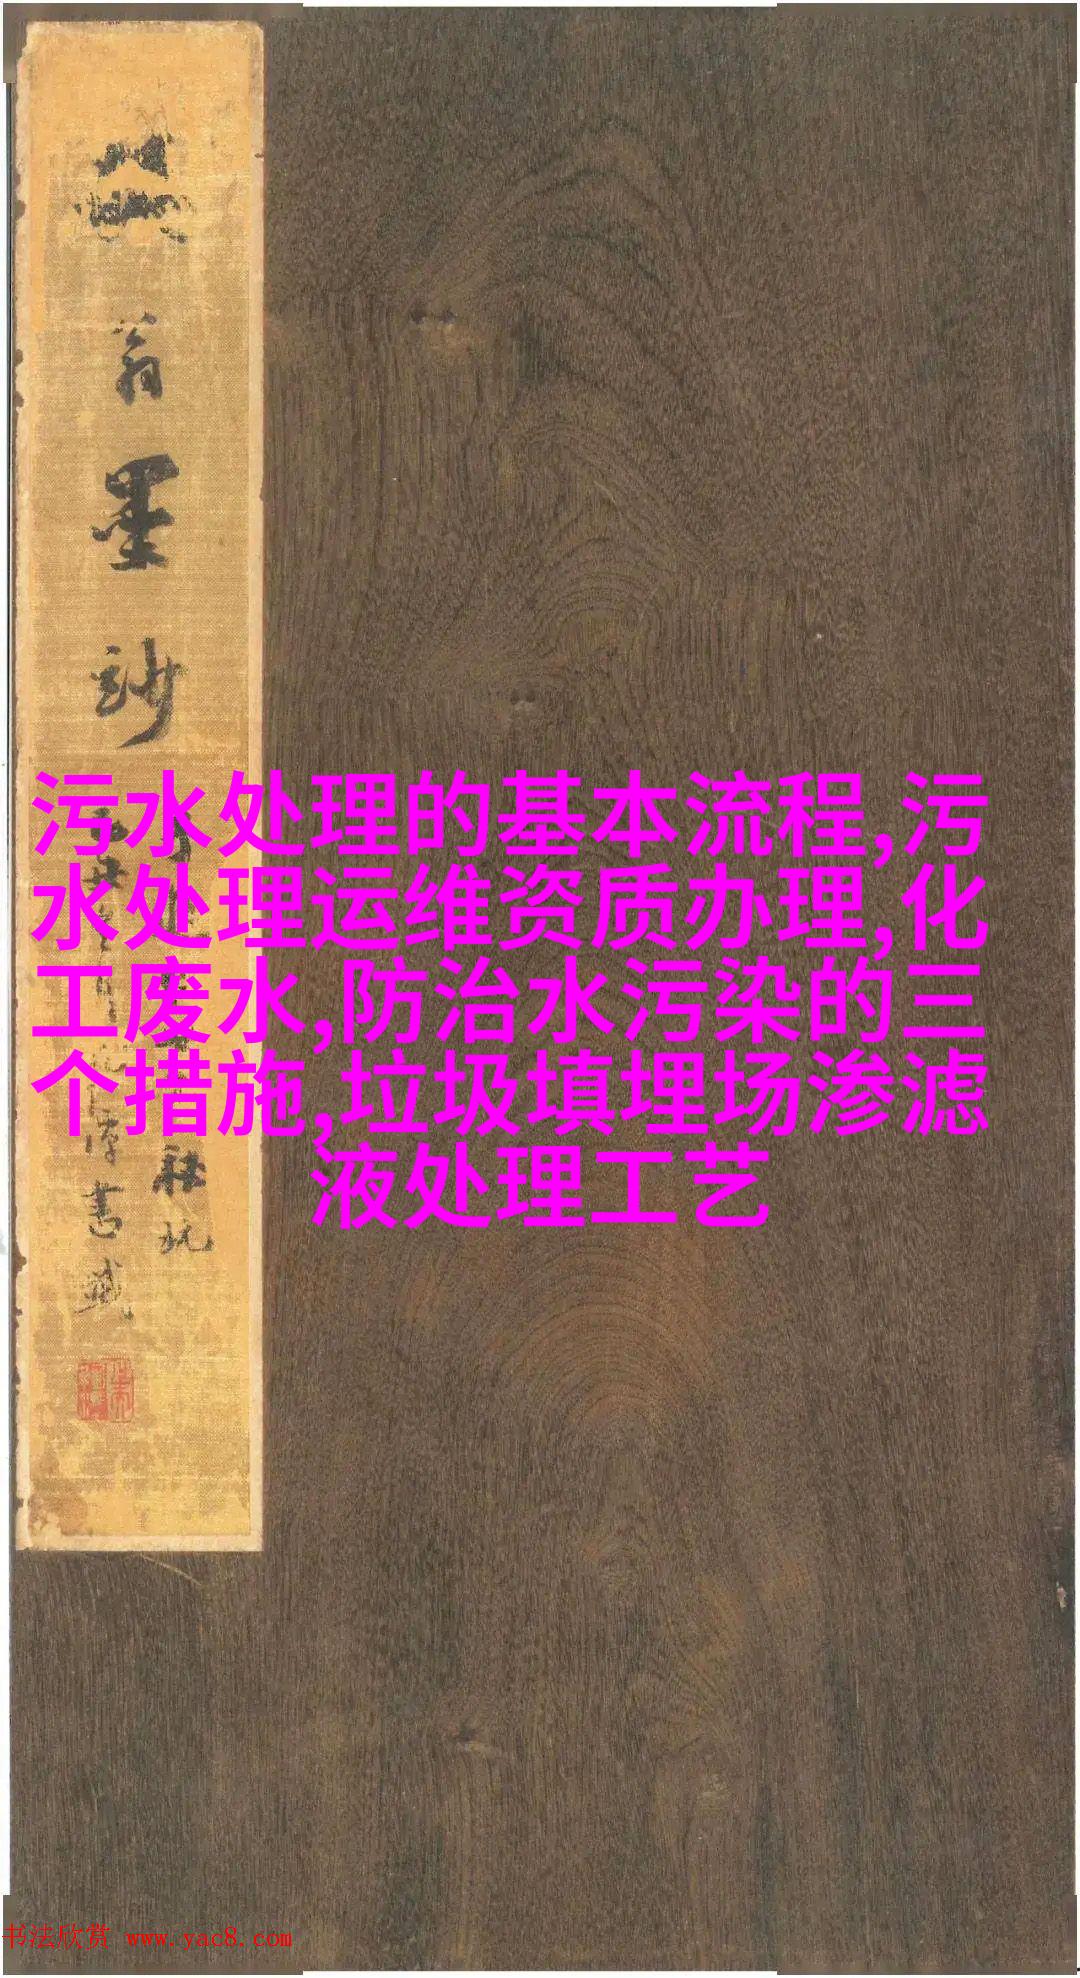 翁墨妙
污水处理的基本流程,污
水处理运维资质办理,化
工废水,防治水污染的三
个措施,垃圾填埋场渗滤
液处理工艺
秘玩
书法欣赏 www.yac8.com